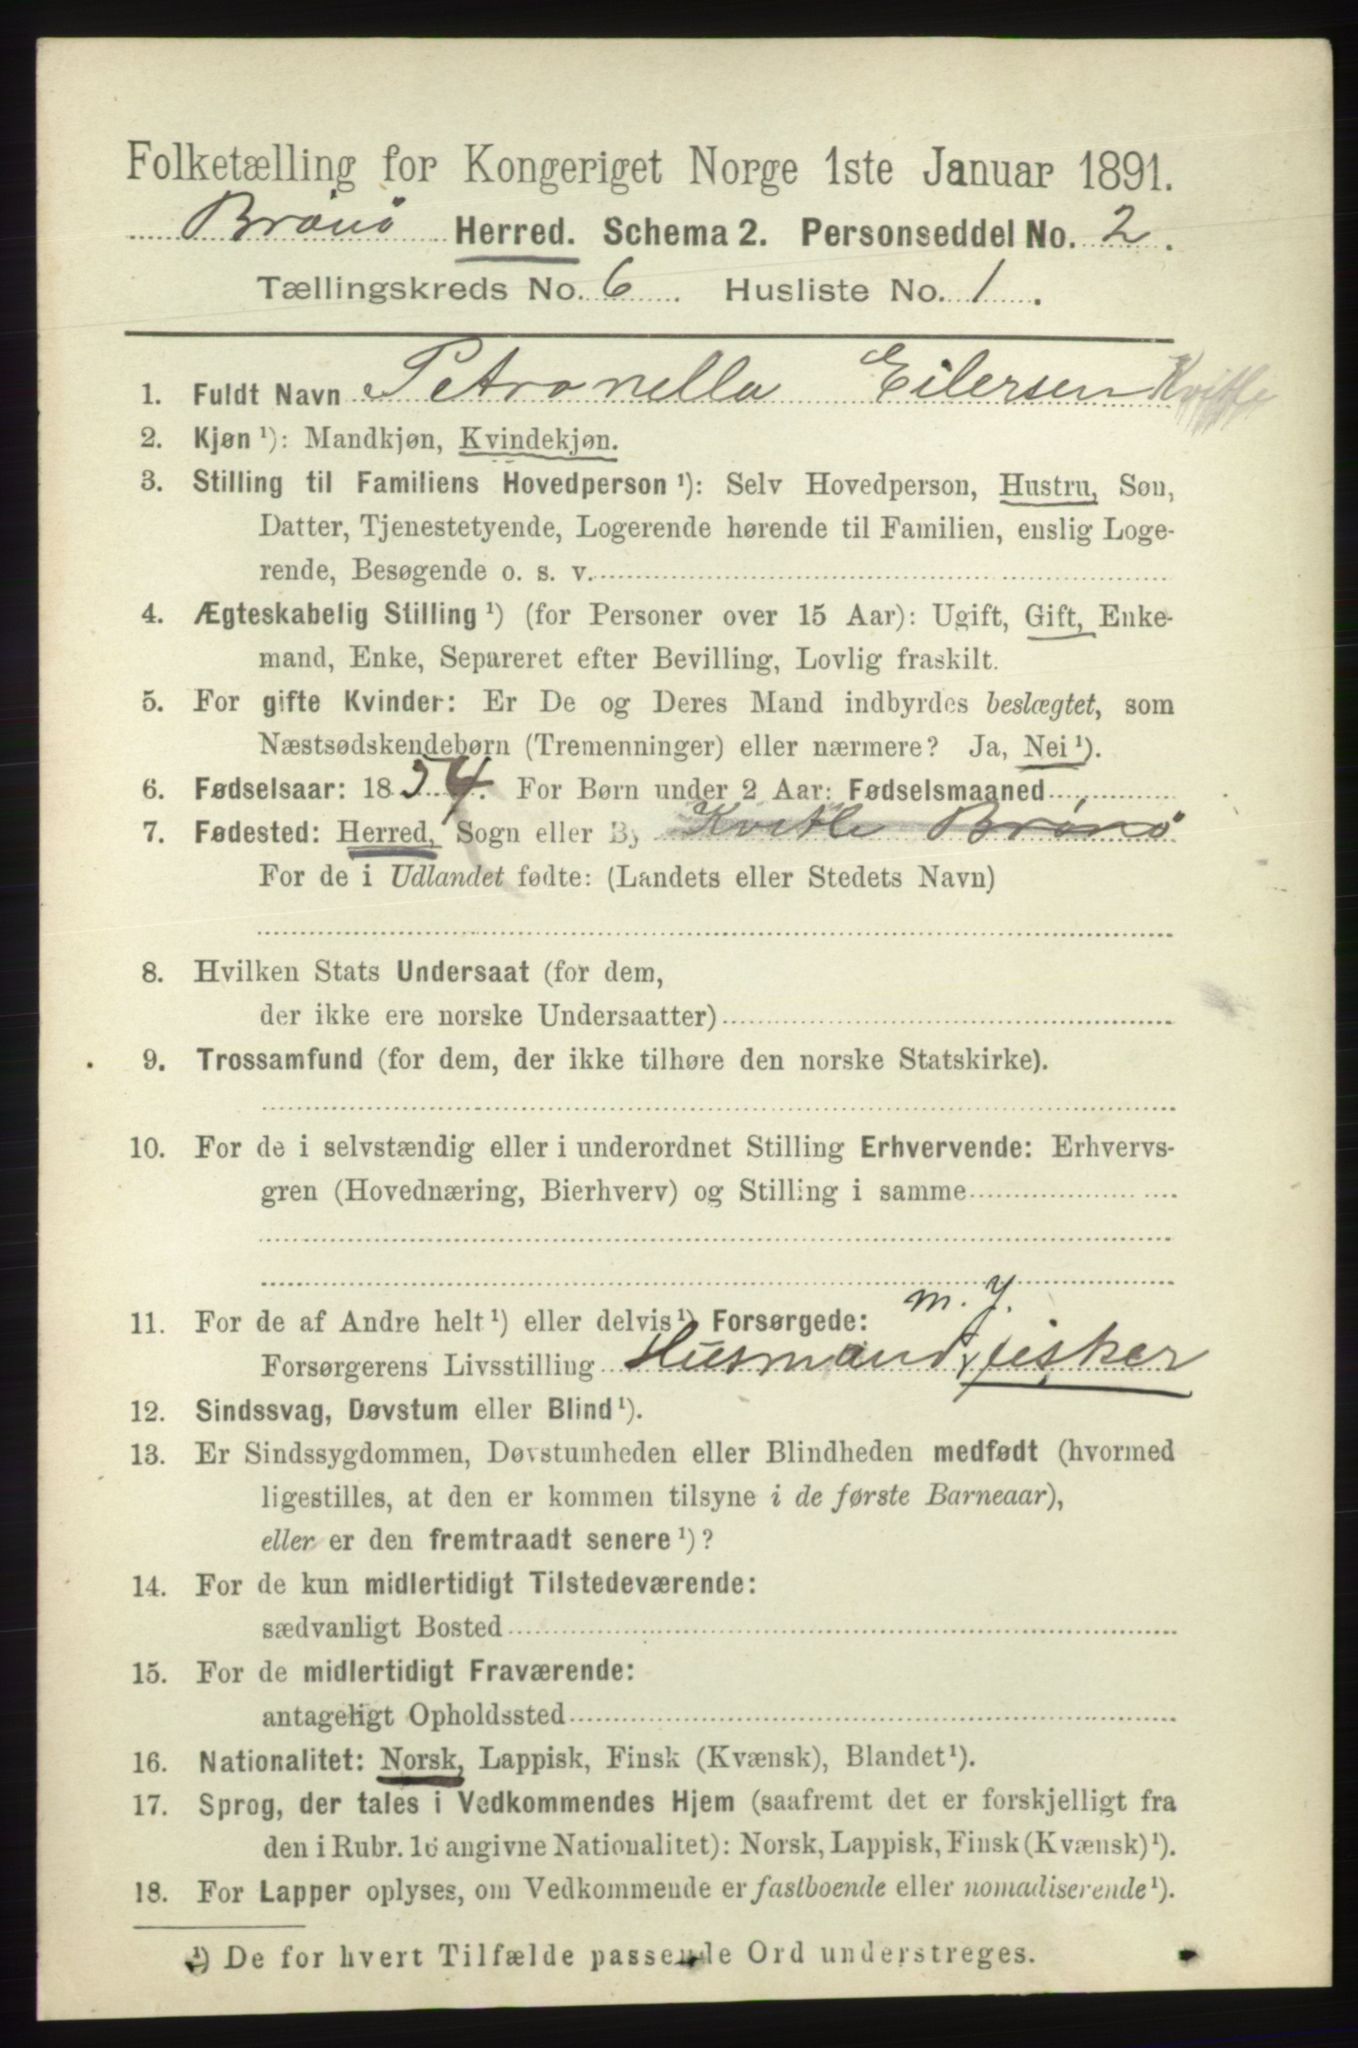 Folketælling for Kongeriget Norge 1ste Januar 1891.
Brønø Herred. Schema 2. Personseddel No. 2.
Tællingskreds No. 6. Husliste No. 1.
1. Fuldt Navn Petronella Eilersen
2. Kjøn ¹): Mandkjøn, Kvindekjøn.
3. Stilling til Familiens Hovedperson ¹): Selv Hovedperson, Hustru, Søn,
Datter, Tjenestetyende, Logerende hørende til Familien, enslig Loge-
rende, Besøgende o. s. v.
4. Ægteskabelig Stilling ¹) (for Personer over 15 Aar): Ugift, Gift, Enke-
mand, Enke, Separeret efter Bevilling, Lovlig fraskilt.
5. For gifte Kvinder: Er De og Deres Mand indbyrdes beslægtet, som
Næstsødskendebørn (Tremenninger) eller nærmere? Ja, Nei ¹).
6. Fødselsaar: 1854. For Børn under 2 Aar: Fødselsmaaned
7. Fødested: Herred, Sogn eller By Brønø
For de i Udlandet fødte: (Landets eller Stedets Navn)
8. Hvilken Stats Undersaat (for dem,
der ikke ere norske Undersaatter)
9. Trossamfund (for dem, der ikke tilhøre den norske Statskirke).
10. For de i selvstændig eller i underordnet Stilling Erhvervende: Erhvervs-
gren (Hovednæring, Bierhverv) og Stilling i samme
m. J.
11. For de af Andre helt ¹) eller delvis ¹) Forsørgede:
Forsørgerens Livsstilling Husmand, fisker
12. Sindssvag, Døvstum eller Blind ¹).
13. Er Sindssygdommen, Døvstumheden eller Blindheden medfødt (hvormed
ligestilles, at den er kommen tilsyne i de første Barneaar),
eller er den fremtraadt senere ¹)?
14. For de kun midlertidigt Tilstedeværende:
sædvanligt Bosted
15. For de midlertidigt Fraværende:
antageligt Opholdssted
16. Nationalitet: Norsk, Lappisk, Finsk (Kvænsk), Blandet ¹).
17. Sprog, der tales i Vedkommendes Hjem (saafremt det er forskjelligt fra
den i Rubr. 16 angivne Nationalitet): Norsk, Lappisk, Finsk (Kvænsk) ¹).
18. For Lapper oplyses, om Vedkommende er fastboende eller nomadiserende ¹).
¹) De for hvert Tilfælde passende Ord understreges.